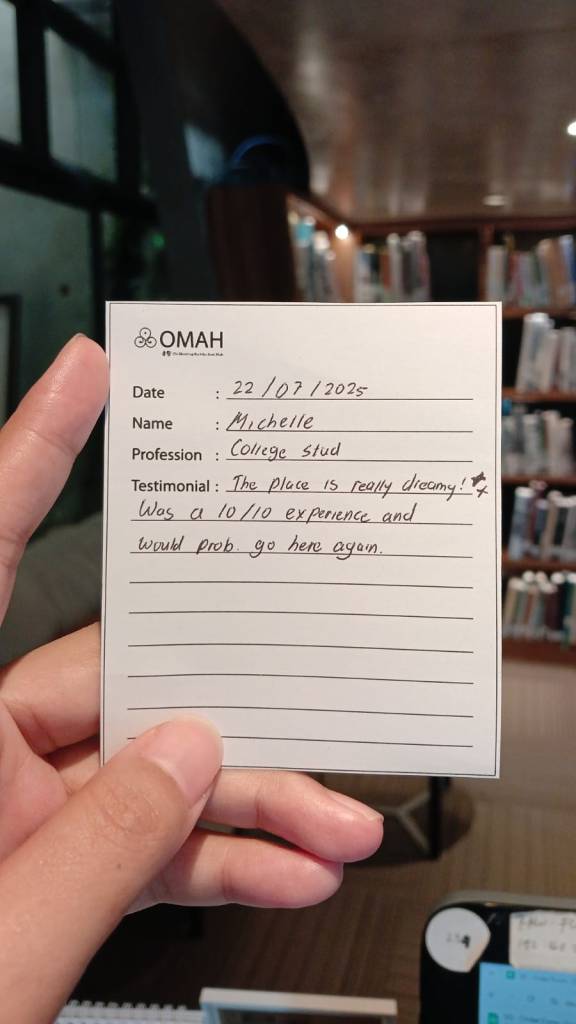 OMAH
Date : 22/07/2025
Name : Michelle
Profession : College stud
Testimonial : The place is really dreamy!
Was a 10/10 experience and
would prob. go here again.